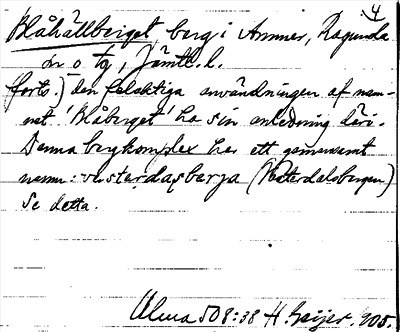 4
Blåhällberget, berg i Ammer, Ragunda
sn o tg, Jämtl. l.
(forts.) den felaktiga användningen af nam-
net 'Blåberget' ha sin anledning däri.
Denna bergkomplex har ett gemensamt
namn: västardasbærja (Västerdalsbergen)
Se detta.
Alma 508:38 H. Geijer. 205.